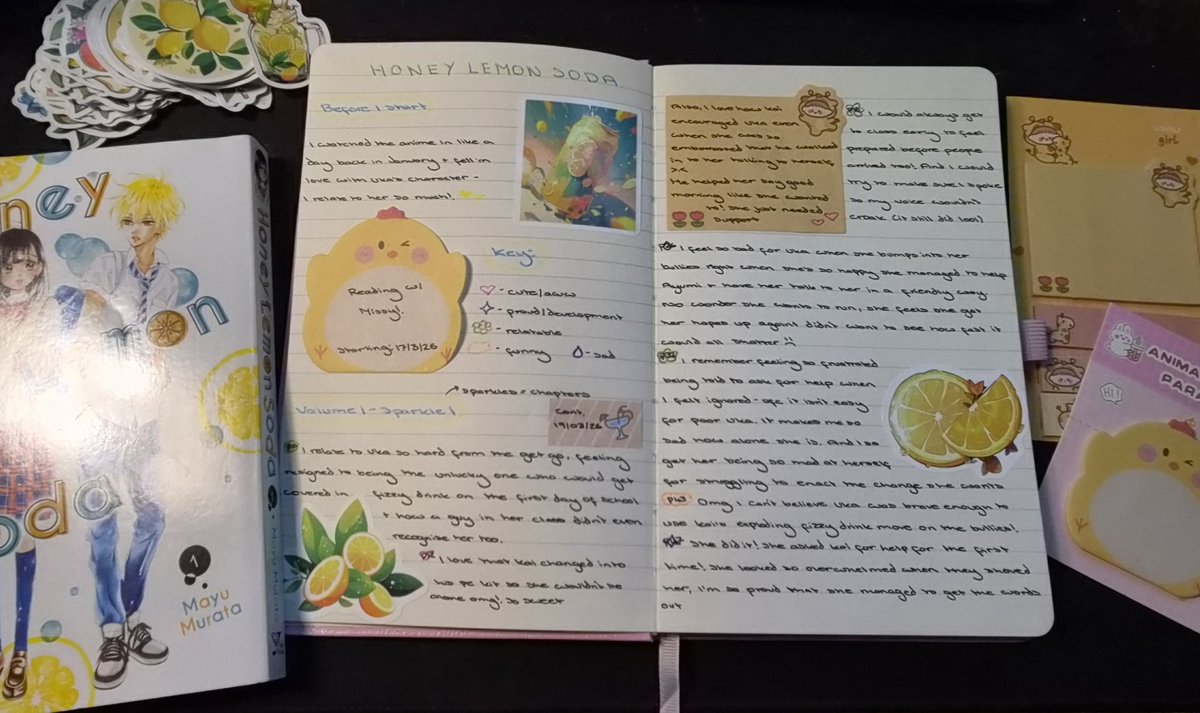 HONEY LEMON SODA
Before I start
I watched the anime in like a
day back in January + fell in
love with Uka's character -
I relate to her so much!
Reading w/
Missy!
Starting: 17/3/26
Key:
- cute/aww
- proud/development
- relatable
- funny
- sad
↗ sparkles = chapters
Volume 1 - Sparkle 1
Cont.
19/03/26
I relate to Uka so hard from the get go, feeling
resigned to being the unlucky one who would get
covered in fizzy drink on the first day of school
+ how a guy in her class didn't even
recognise her too.
I love that Kai changed into
his PE kit so she wouldn't be
alone omg! So sweet
Also, I love how Kai
encouraged Uka even
when she was so
embarrassed that he walked
in to her talking to herself
>.<
He helped her say good
morning like she wanted
to! She just needed
support
I would always get
to class early to feel
prepared before people
arrived too! And I would
try to make sure I spoke
so my voice wouldn't
croak (it still did lool)
I feel so bad for Uka when she bumps into her
bullies right when she's so happy she managed to help
Ayumi + have her talk to her in a friendly way
No wonder she wants to run, she feels she got
her hopes up again + didn't want to see how fast it
would all shatter :(
I remember feeling so frustrated
being told to ask for help when
I felt ignored - ofc it isn't easy
for poor Uka. It makes me so
sad how alone she is. And I so
get her being so mad at herself
for struggling to enact the change she wants
Omg I can't believe Uka was brave enough to
use Kai's exploding fizzy drink move on the bullies!
She did it! She asked Kai for help for the first
time! She looked so overwhelmed when they shoved
her, I'm so proud that she managed to get the words
out
ney
mon
oda
1
Mayu
Murata
Honey Lemon Soda
1
Mayu Murata
LOVELY
girl
ANIMA
PARA
HI!